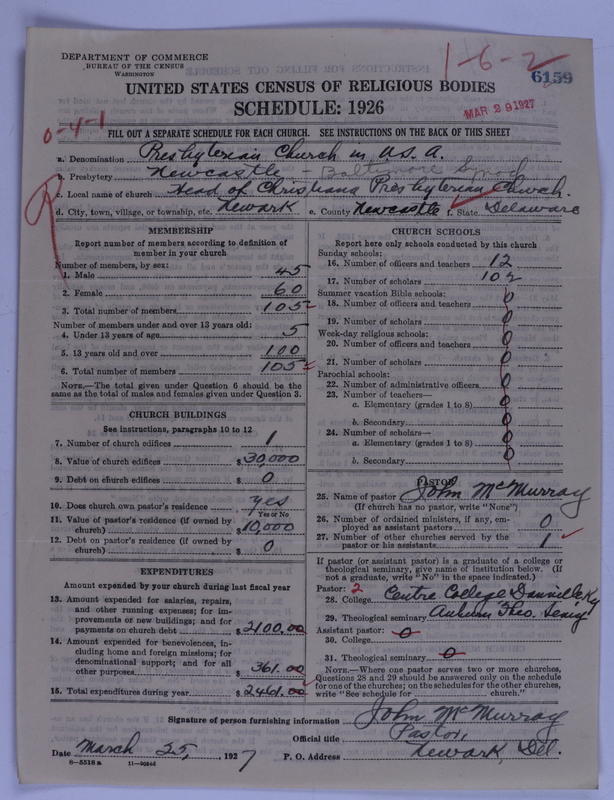 DEPARTMENT OF COMMERCE
BUREAU OF THE CENSUS
WASHINGTON
1-6-2
6159
UNITED STATES CENSUS OF RELIGIOUS BODIES
SCHEDULE: 1926
MAR 29 1927
0-4-1
FILL OUT A SEPARATE SCHEDULE FOR EACH CHURCH. SEE INSTRUCTIONS ON THE BACK OF THIS SHEET
a. Denomination Presbyterian Church in U.S.A.
b. Presbytery Newcastle - Baltimore Synod
c. Local name of church Head of Christiana Presbyterian Church.
d. City, town, village, or township, etc. Newark e. County Newcastle f. State Delaware
MEMBERSHIP
Report number of members according to definition of member in your church
Number of members, by sex:
1. Male 45
2. Female 60
3. Total number of members 105
Number of members under and over 13 years old:
4. Under 13 years of age 5
5. 13 years old and over 100
6. Total number of members 105
NOTE.—The total given under Question 6 should be the same as the total of males and females given under Question 3.
CHURCH BUILDINGS
See instructions, paragraphs 10 to 12
7. Number of church edifices 1
8. Value of church edifices $30,000
9. Debt on church edifices $ 0
10. Does church own pastor's residence yes
Yes or No
11. Value of pastor's residence (if owned by church) $10,000
12. Debt on pastor's residence (if owned by church) $ 0
EXPENDITURES
Amount expended by your church during last fiscal year
13. Amount expended for salaries, repairs, and other running expenses; for improvements or new buildings; and for payments on church debt $2100.00
14. Amount expended for benevolences, including home and foreign missions; for denominational support; and for all other purposes $361.00
15. Total expenditures during year $2461.00
CHURCH SCHOOLS
Report here only schools conducted by this church
Sunday schools:
16. Number of officers and teachers 12
17. Number of scholars 102
Summer vacation Bible schools:
18. Number of officers and teachers 0
19. Number of scholars 0
Week-day religious schools:
20. Number of officers and teachers 0
21. Number of scholars 0
Parochial schools:
22. Number of administrative officers 0
23. Number of teachers—
a. Elementary (grades 1 to 8) 0
b. Secondary 0
24. Number of scholars—
a. Elementary (grades 1 to 8) 0
b. Secondary 0
PASTOR
25. Name of pastor John McMurray
(If church has no pastor, write "None")
26. Number of ordained ministers, if any, employed as assistant pastors 0
27. Number of other churches served by the pastor or his assistants 1
If pastor (or assistant pastor) is a graduate of a college or theological seminary, give name of institution below. (If not a graduate, write "No" in the space indicated.)
Pastor: 2
28. College Centre College Danville Ky
29. Theological seminary Auburn Theo.
Assistant pastor: 0
30. College
31. Theological seminary 0
NOTE.—Where one pastor serves two or more churches, Questions 28 and 29 should be answered only on the schedule for one of the churches; on the schedules for the other churches, write "See schedule for church."
Signature of person furnishing information John McMurray
Official title Pastor,
Date March 25, 1927 P. O. Address Newark, Del.
8-5518a 11-9